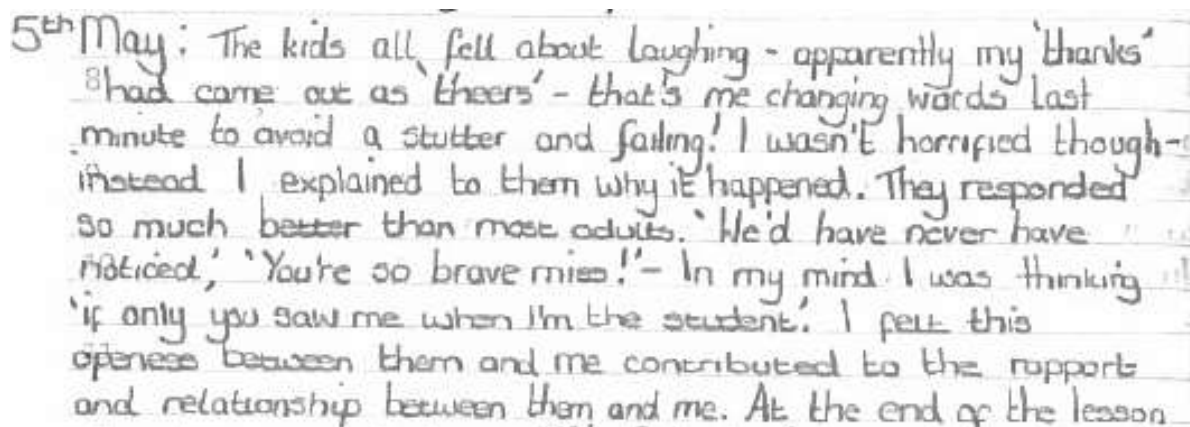 5th May: The kids all fell about laughing - apparently my 'thanks'
had come out as 'theers' - that's me changing words last
minute to avoid a stutter and failing! I wasn't horrified though -
instead I explained to them why it happened. They responded
so much better than most adults. 'We'd have never have
noticed,' 'You're so brave miss!' - In my mind I was thinking
'if only you saw me when I'm the student.' I felt this
openess between them and me contributed to the rapport
and relationship between them and me. At the end of the lesson